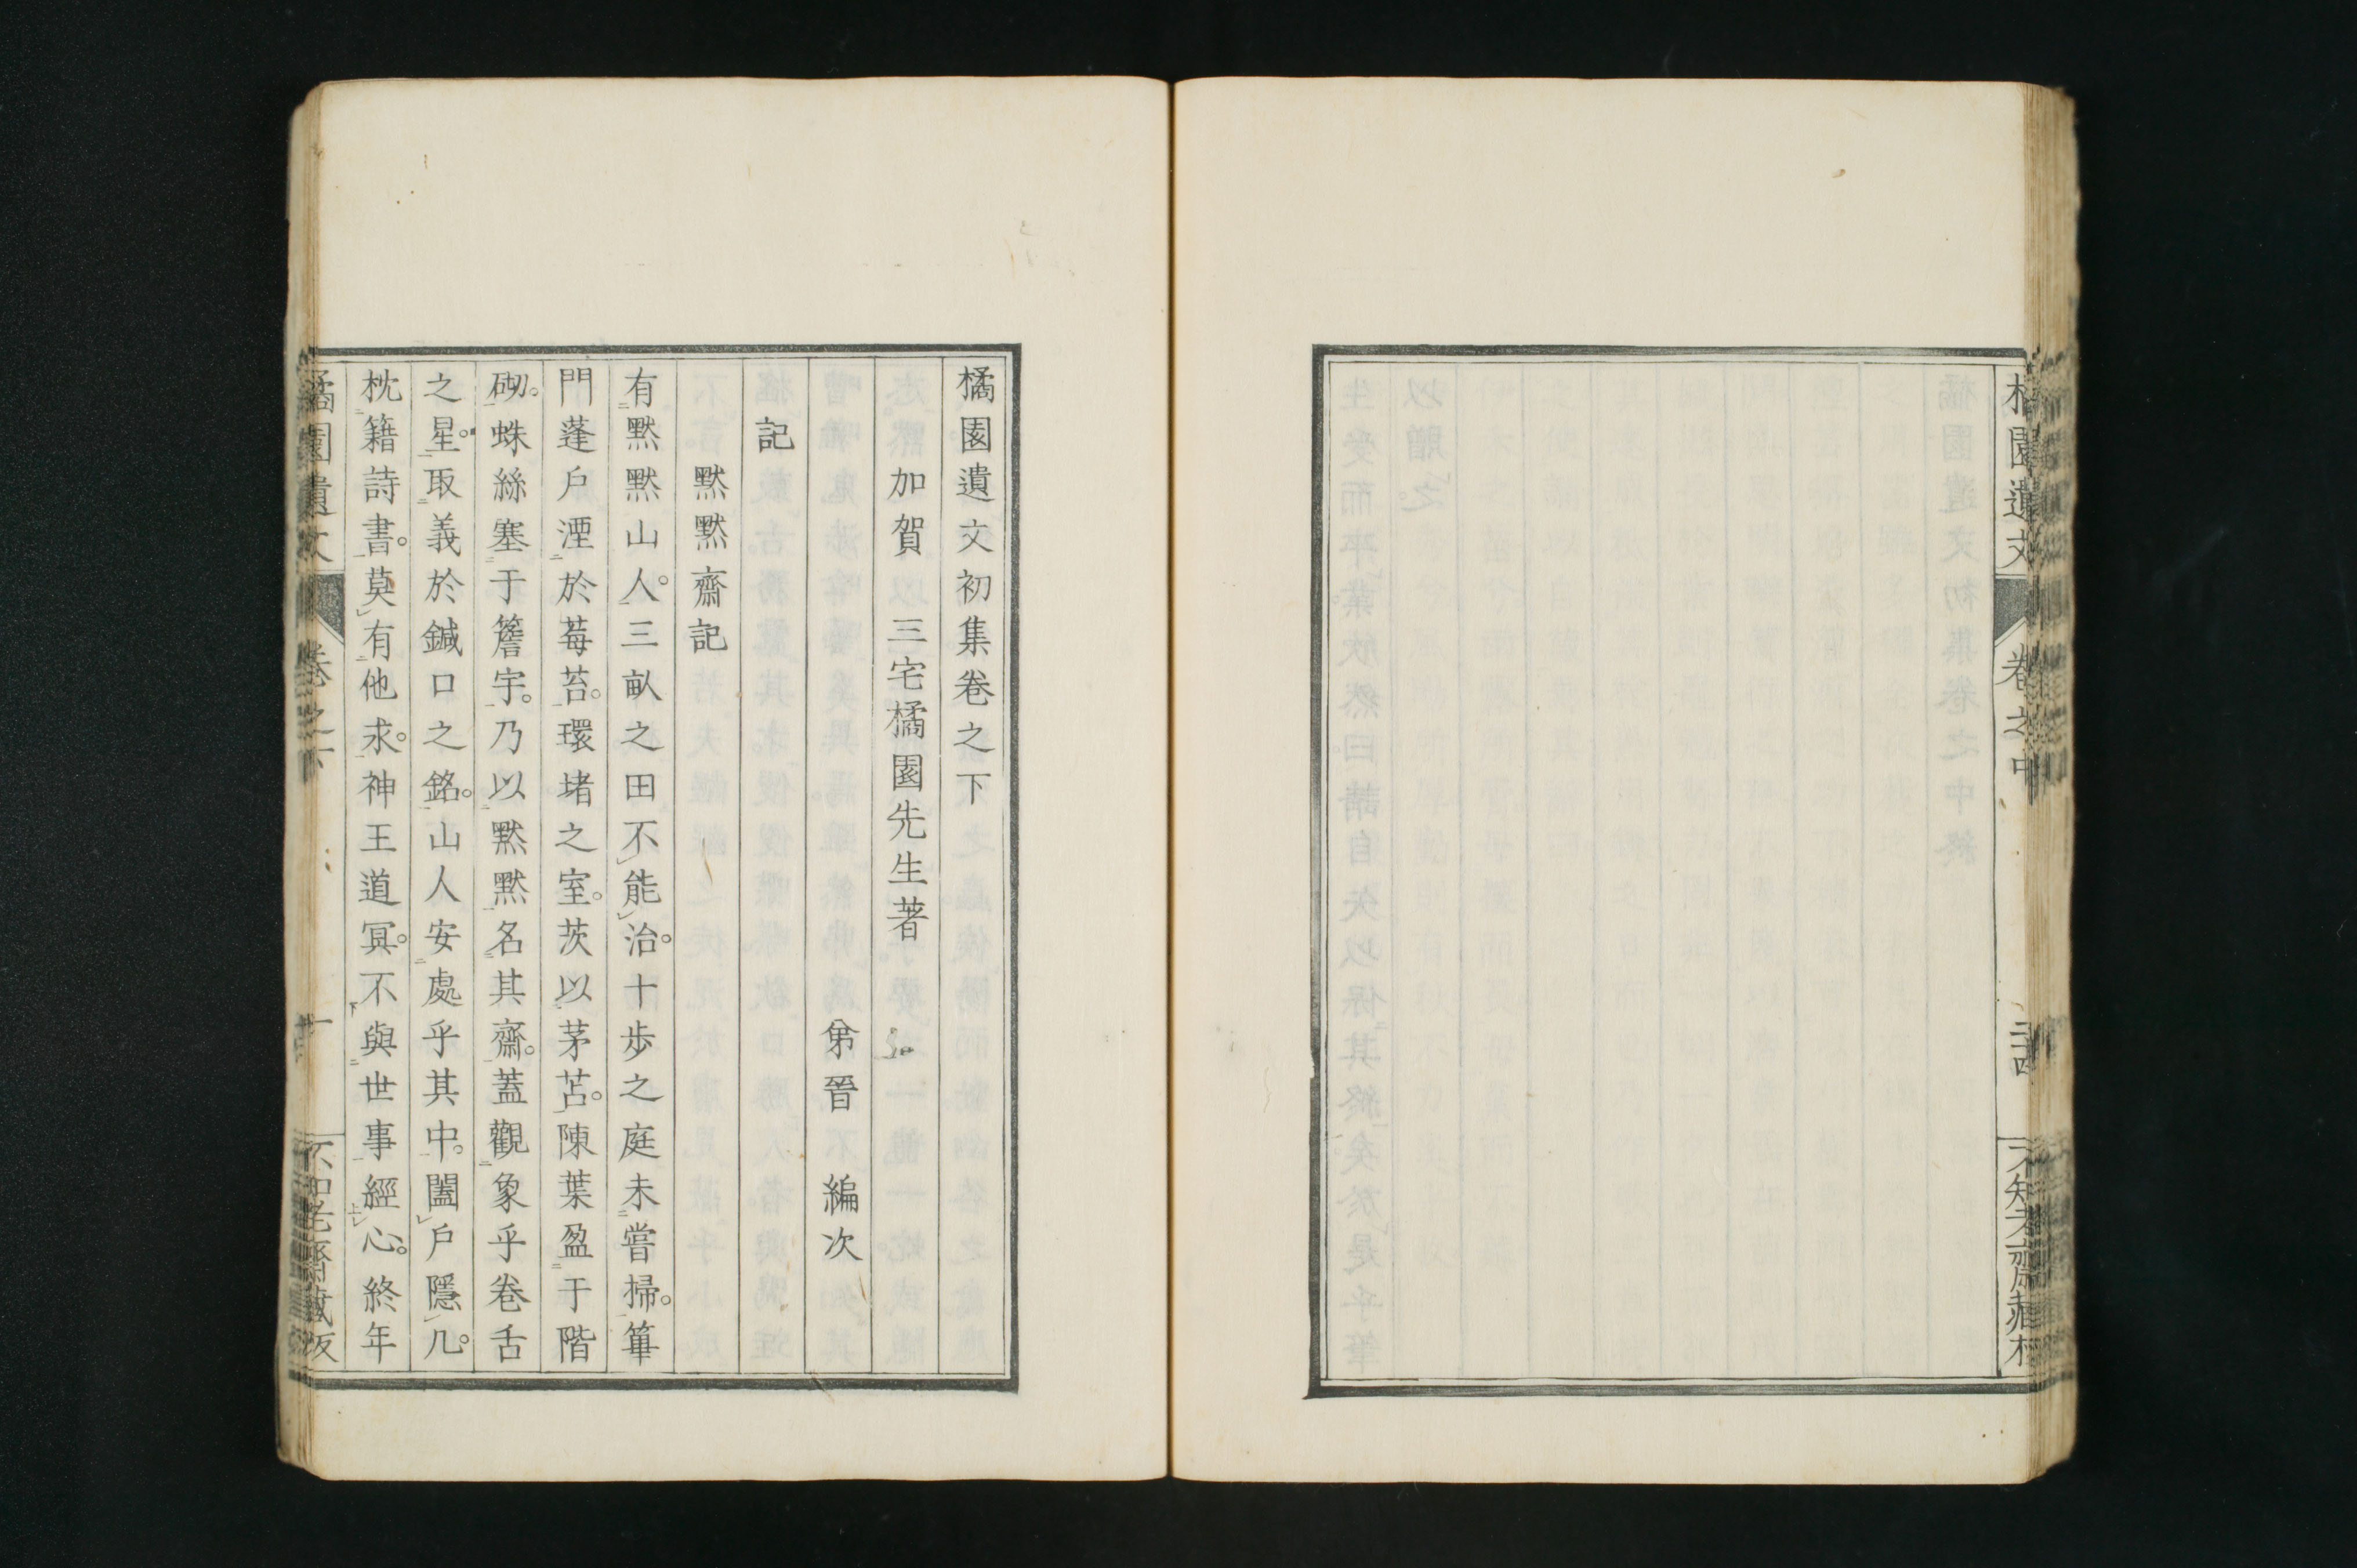 橘園遺文
卷之中
二十四
不知老齋藏板
橘園遺文初集卷之下
加賀 三宅橘園先生著
弟晉 編次
記
默默齋記
有默默山人。三畝之田不能治。十步之庭未嘗掃。篳
門蓬戶湮於莓苔。環堵之室。茨以茅苫。陳葉盈于階
砌。蛛絲塞于簷宇。乃以默默名其齋。蓋觀象乎卷舌
之星。取義於鍼口之銘。山人安處乎其中。闔戶隱几。
枕籍詩書。莫有他求。神王道冥。不與世事經心。終年
橘園遺文
卷之下
一
不知老齋藏板